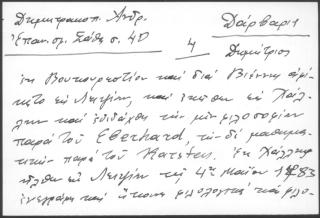 Δημητρακοπ. Ἀνδρ.
Δάρβαρις
Ἐπαν. σ. 40
4
Δημήτριος
ἐκ Βουκουρεστίου καὶ διὰ Βιέννης ἀφί-
κετο εἰς Λειψίαν, καὶ ἐκεῖθεν εἰς Χάλ-
λην καὶ ἐδιδάχθη τὴν μὲν φιλοσοφίαν
παρὰ τοῦ Eberhard, τὰ δὲ μαθημα-
τικὰ παρὰ τοῦ Karsten. Ἐκ Χάλλης
ἦλθεν εἰς Λειψίαν τῇ 4ῃ Μαΐου 1783
ἐνεγράφη καὶ ἤκουσε φιλολογικὰ καὶ φιλο-